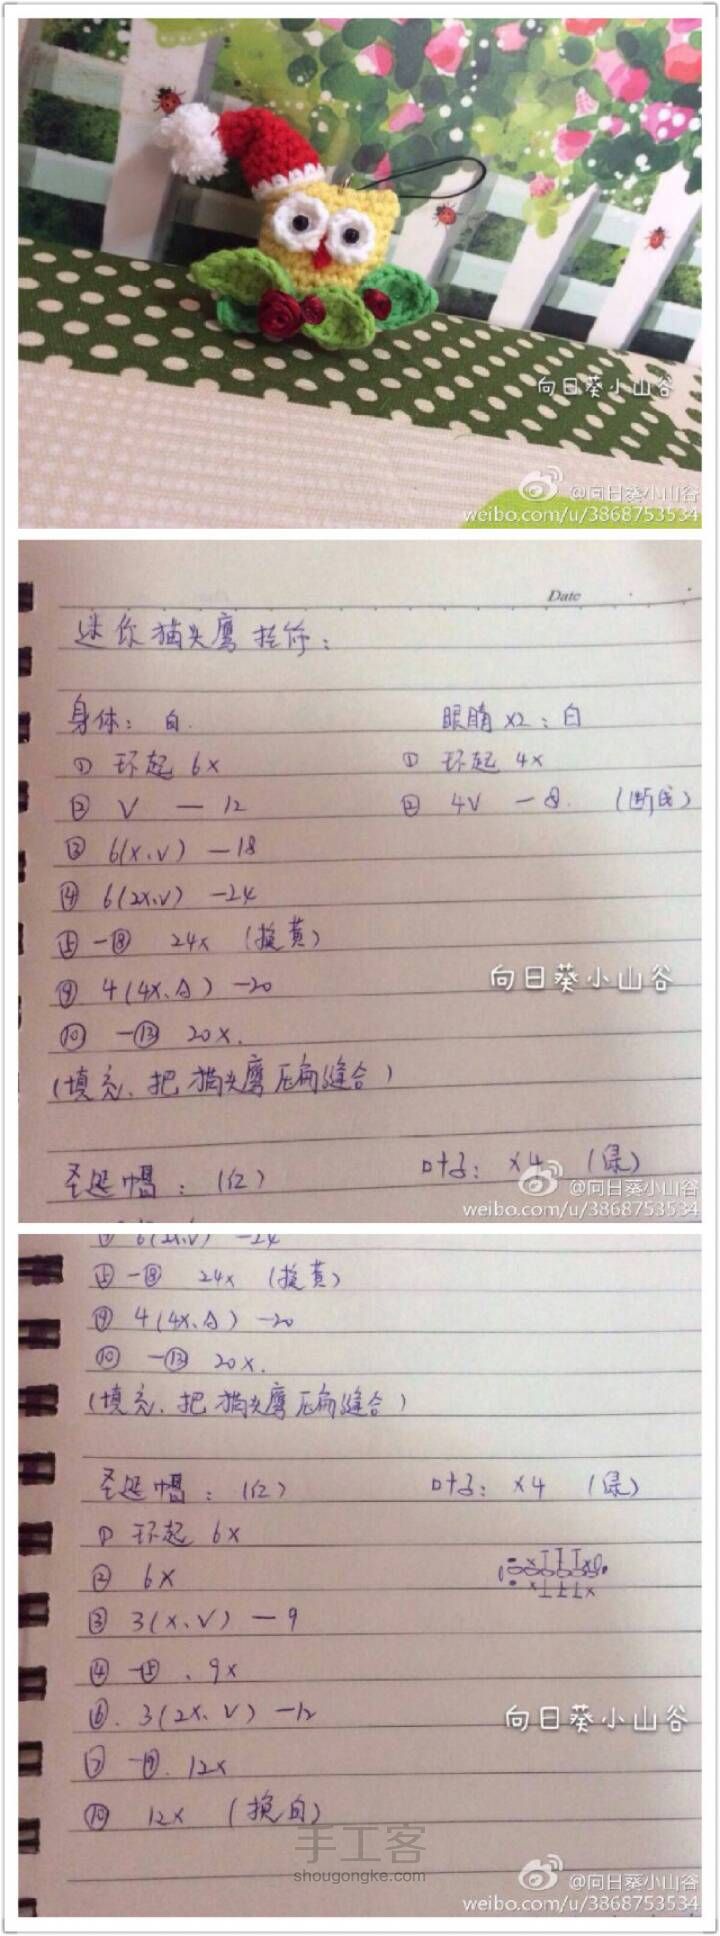 向日葵小山谷
@向日葵小山谷
weibo.com/u/3868753534
Date
迷你猫头鹰挂件：
身体：白. 眼睛 x2：白
① 环起 6x ① 环起 4x
② V — 12 ② 4V — 8. （断线）
③ 6(x、V) — 18
④ 6(2x、V) — 24
⑤ — ⑧ 24x （换黄）
⑨ 4(4x、A) — 20
⑩ — ⑬ 20x.
（填充、把猫头鹰压扁缝合）
向日葵小山谷
圣诞帽：（红） 叶子：x4 （绿）
@向日葵小山谷
weibo.com/u/3868753534
④ 6(2x、V) — 24
⑤ — ⑧ 24x （换黄）
⑨ 4(4x、A) — 20
⑩ — ⑬ 20x.
（填充、把猫头鹰压扁缝合）
圣诞帽：（红） 叶子：x4 （绿）
① 环起 6x
② 6x
③ 3(x、V) — 9
④ — ⑤、9x
⑥. 3(2x、V) — 12
向日葵小山谷
⑦ — ⑨. 12x
⑩ 12x （换白）
手工客
shougongke.com
@向日葵小山谷
weibo.com/u/3868753534